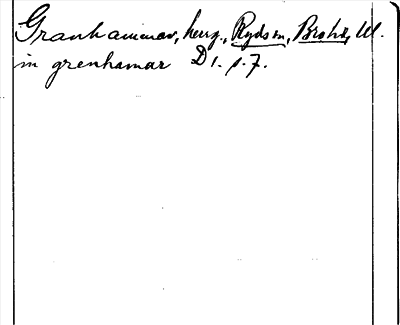 Granhammar, herrg., Ryds sn, Brohd, Upl.
in grenhamar D 1. s. 7.